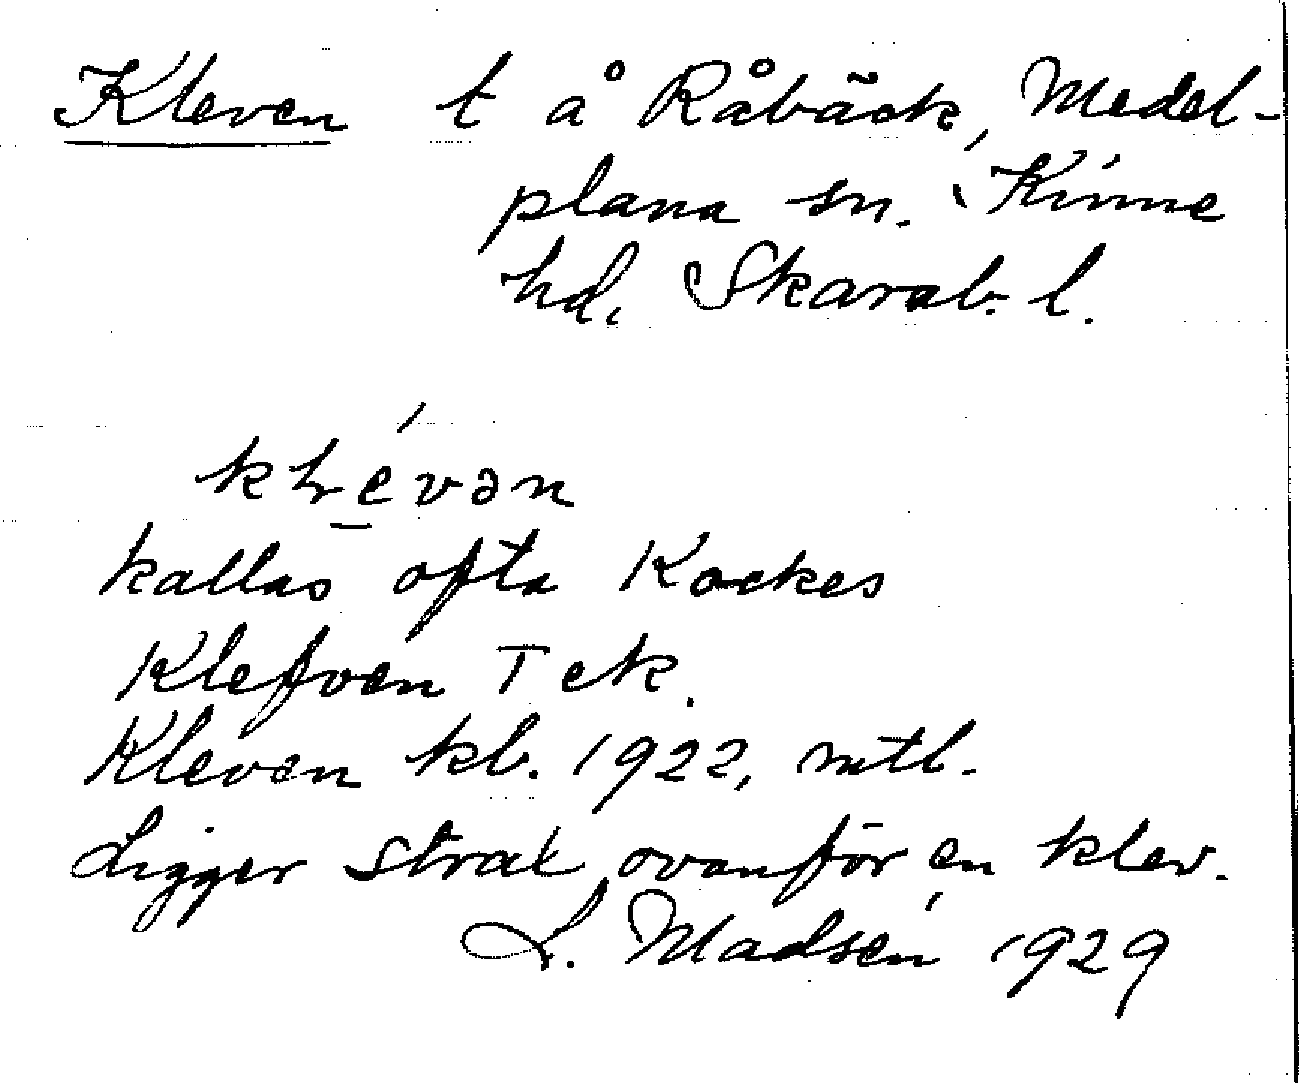 Kleven t å Råbäck, Medel-
plana sn. Kinne
hd. Skarab. l.
kallas ofta Kockes
Klefven Tek.
Kleven kb. 1922, mtl.
Ligger strax ovanför en klev.
L. Madsén 1929